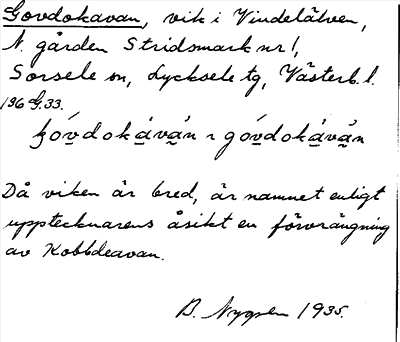 Govdokavan, vik i Vindelälven,
N. gården Stridsmark nr 1,
Sorsele sn, Lycksele tg, Västerb. l.
196 G. 33.
góv̀dokáván ~ góv̀dokáván
Då viken är bred, är namnet enligt
upptecknarens åsikt en förvrängning
av Kobbdeavan.
B. Nygren 1935.